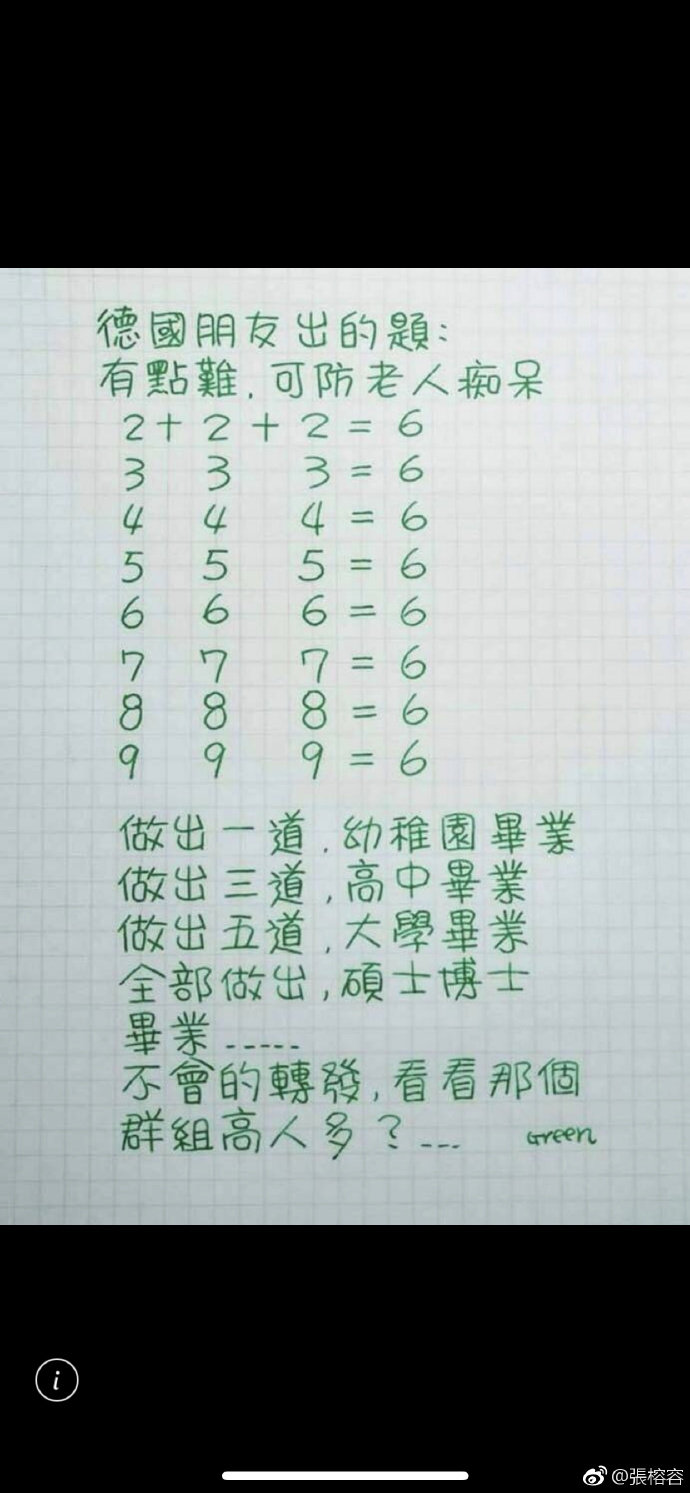 德國朋友出的題:
有點難,可防老人痴呆
2 + 2 + 2 = 6
3 3 3 = 6
4 4 4 = 6
5 5 5 = 6
6 6 6 = 6
7 7 7 = 6
8 8 8 = 6
9 9 9 = 6
做出一道,幼稚園畢業
做出三道,高中畢業
做出五道,大學畢業
全部做出,碩士博士
畢業-----
不會的轉發,看看那個
群組高人多?---
Green
i
@張榕容